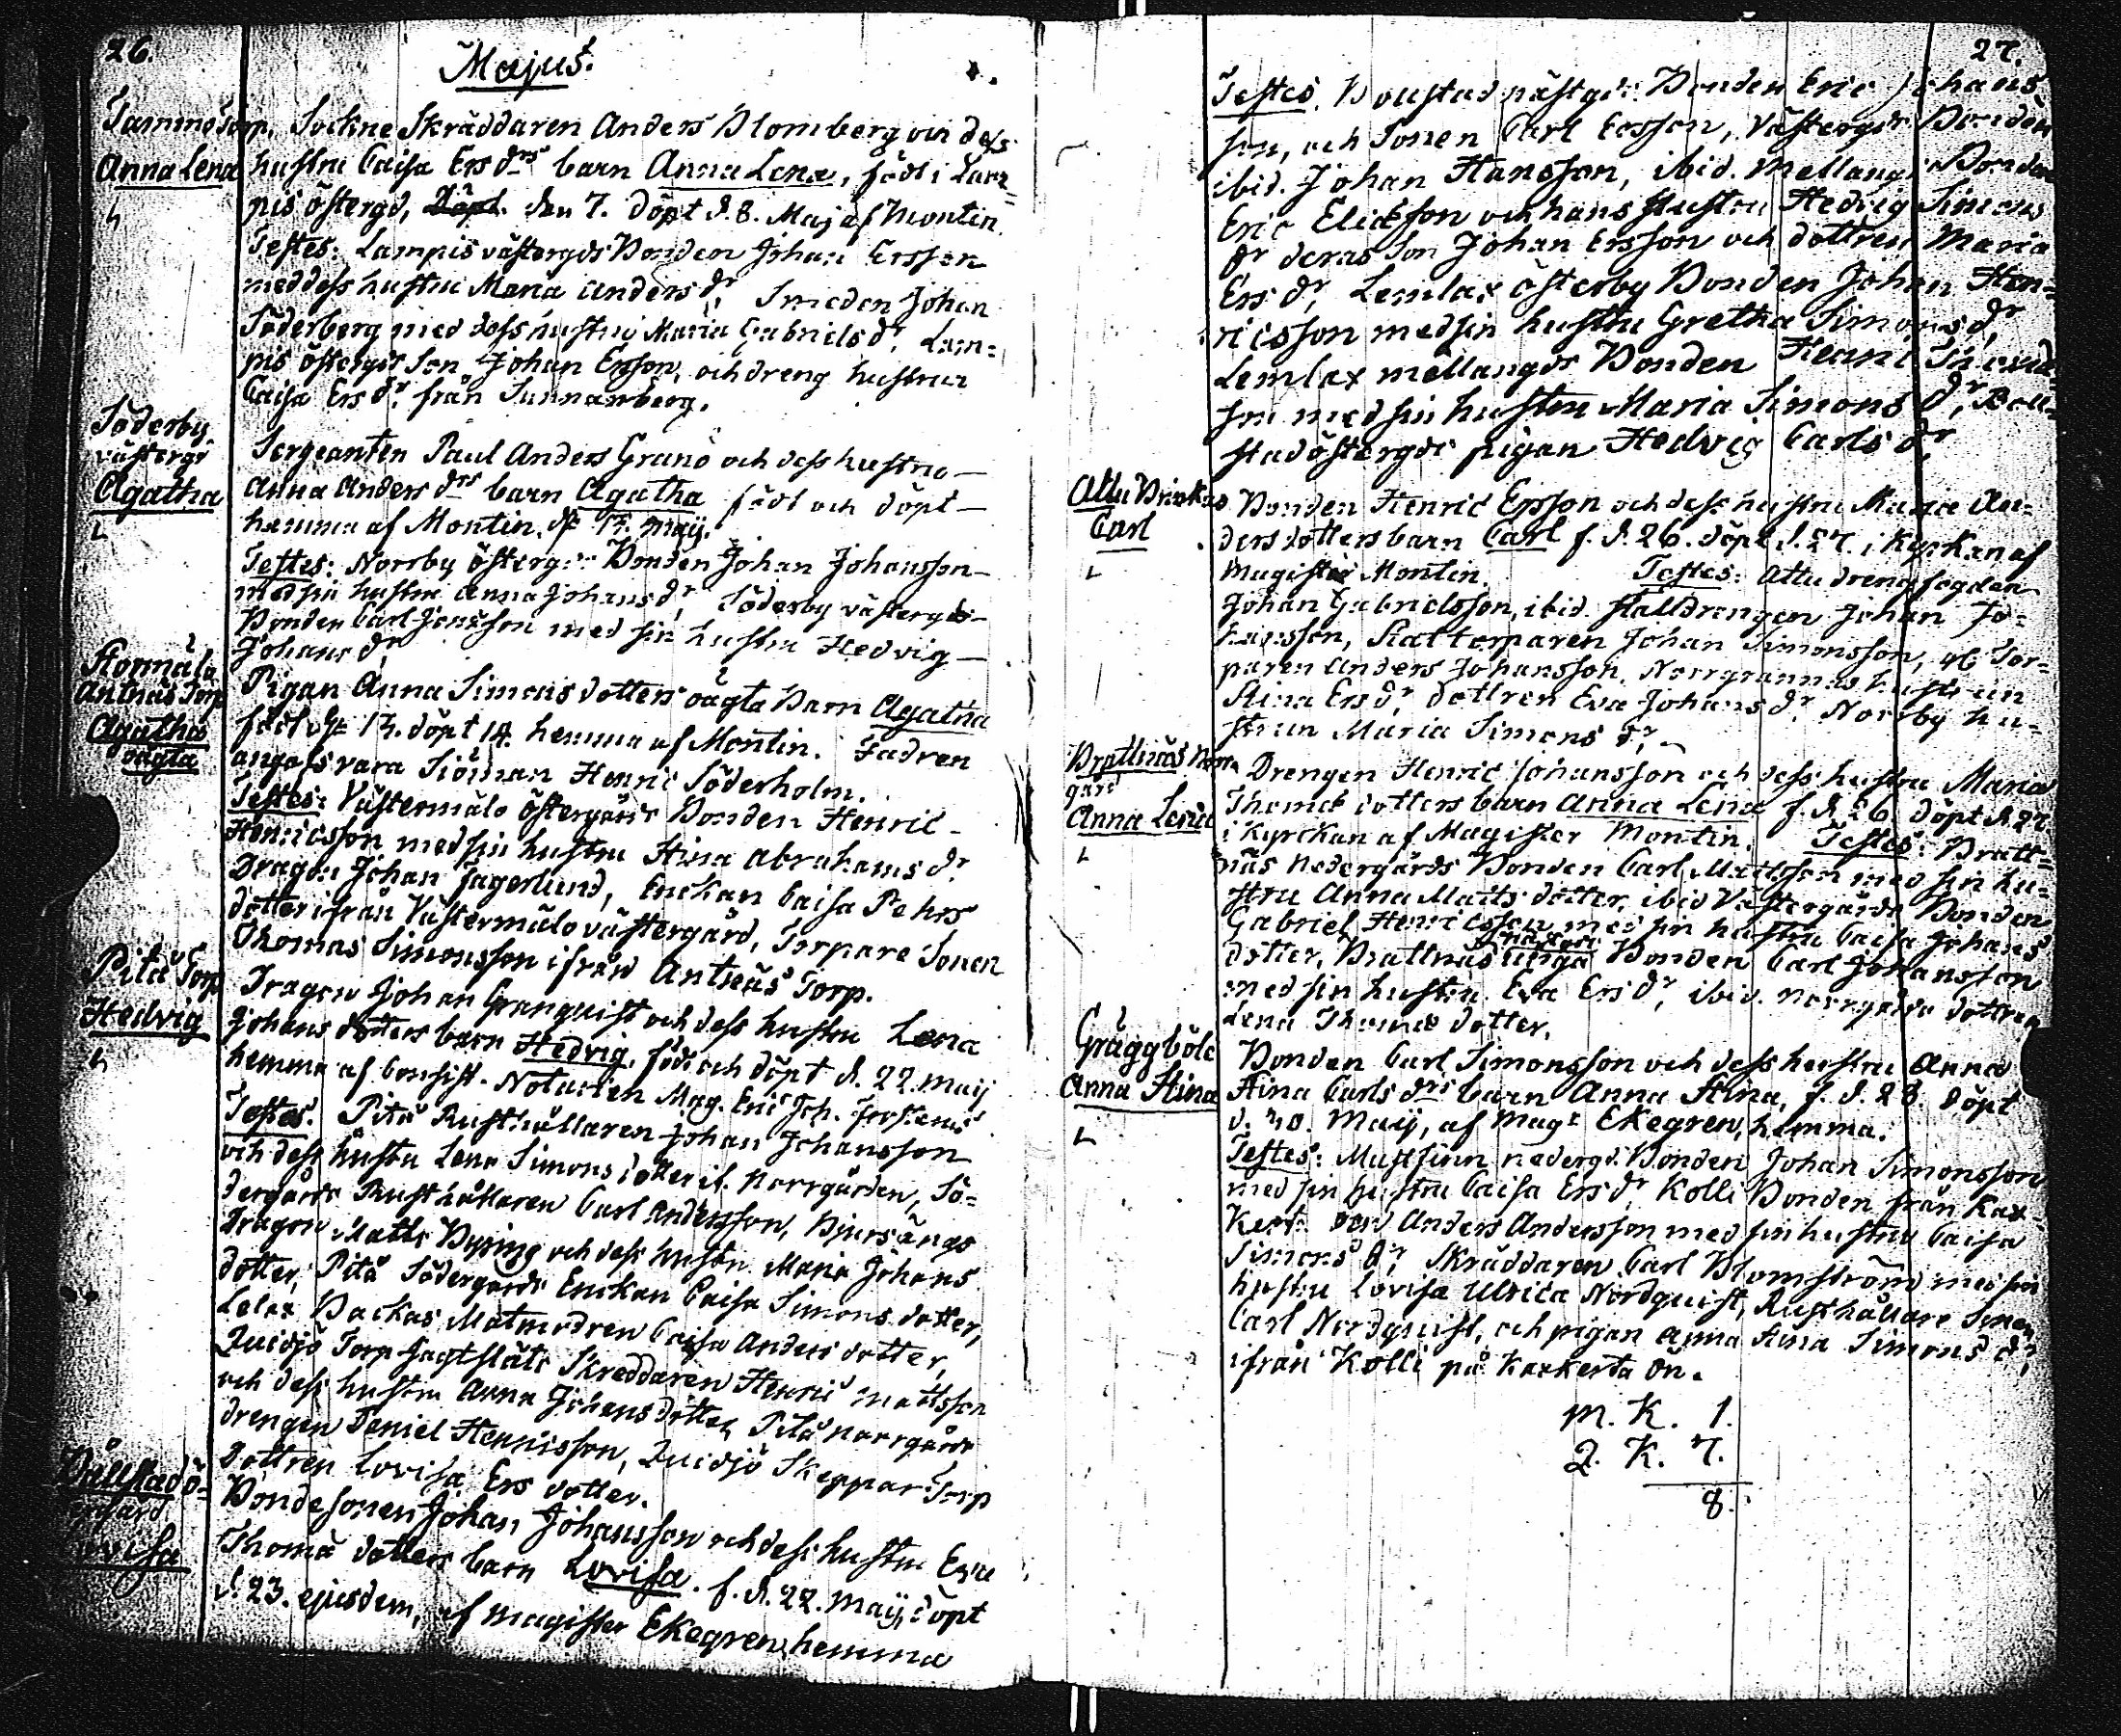 26.
Majus.
Tammo Torp. Sockne Skräddaren Anders Blomberg och dess
Anna Lena hustru Caisa Ersdrs barn Anna Lena, född i Lam=
pis östergd, den 7. döpt d. 8. Maj af Montin.
Testes: Lampis västergds Bonden Johan Ersson
med dess hustru Maria Andersdr, Smeden Johan
Söderberg med dess hustru Maria Gabrielsdr, Lam=
pis östergds Son Johan Ersson, och dreng hustrun
Caisa Ersdr från Sunnanberg.
Söderby
västergd
Agatha
Sergeanten Paul Anders Granö och dess hustru
Anna Andersdrs barn Agatha född och döpt
hemma af Montin, d. 13. maij.
Testes: Norrby österg: Bonden Johan Johansson
med sin hustru Anna Johansdr, Söderby västergds
Bonden Carl Jonsson med sin hustru Hedvig
Johansdr
Stormälö
Antnäs Torp
Agatha
oägta
Pigan Anna Simonsdotters oägta Barn Agatha
född d. 13. döpt 14. hemma af Montin. Fadren
angafs vara Siöman Henric Söderholm.
Testes: Västermälo östergårds Bonden Henric
Henricsson med sin hustru Stina Abrahamsdr
Dragon Johan Jagerlund, Enckan Caisa Pehrs
dotter ifrån Västermälo västergård, Torpare Sonen
Thomas Simonsson ifrån Antnäs Torp.
Pitå Torp
Hedvig
Dragon Johan Granquist och dess hustru Lena
Johans dotters barn Hedvig, född och döpt d. 22 maij
hemma af Consist. Notarien Mag. Eric Joh.
Testes. Pitå Rusthållaren Johan Johansson
och dess hustru Lena Simons dotter if. Norrgården, Sö=
dergårds Rusthållaren Carl Andersson, Bjursängs
Dragon Matts Bysing och dess hustru Maria Johans
dotter, Pitå Södergårds Enckan Caisa Simons dotter,
Lelax Backas Matmodren Caisa Anders dotter,
Qvidjö Torp Jagtslåts Skreddaren Henric Mattsson
och dess hustru Anna Johans dotter, Pitå norrgårds
drengen Deniel Henricsson, Qvidjö Skeppar Torp
Dottren Lovisa Ers dotter.
Bållstad ö=
Bondesonen Johan Johansson och dess hustru
Thomæ dotters barn Lovisa. f. d. 22. maij, döpt
d. 23. ejusdem, af magister Ekegren, hemma
27.
Testes. Boustad västgds: Bonden Eric Johans
son, och Sonen Carl Ersson, Västergds Bonden
ibid. Johan Hansson, ibid. mellangds Bonden
Eric Ericsson och hans hustru Hedvig Simons
dr deras Son Johan Ersson och dottren Maria
Ersdr, Lemlax österby Bonden Johan Hen=
ricsson med sin hustru Gretha Simonsdr,
Lemlax mellangds Bonden
son med sin hustru Maria Simonsdr, Boll=
stad östergds pigan Hedvig Carlsdr,
Attu
Carl
Bonden Henric Ersson och dess hustru Maria An=
dersdotters barn Carl f. d. 26. döpt d. 27. i Kyrkan af
Magister Montin. Testes: Attu drengfogden
Johan Gabrielsson, ibid. stalldrengen Johan Jo=
hansson, Rattorparen Johan Simonsson, Tor=
paren Anders Johansson, Norrgrannas hustrun
Stina Ersdr, dottren Eva Johansdr. Norrby hu=
strun Maria Simonsdr,
Brattnäs Norr
gård
Anna Lena
Drengen Henric Johansson och dess hustru Maria
Thomæ dotters barn Anna Lena f. d. 26. döpt d. 27.
i Kyrckan af Magister Montin. Testes: Bratt=
näs Nedergårds Bonden Carl Mattsson med sin hu=
stru Anna Matts dotter, ibid Västergårds Bonden
Gabriel Henricsson med sin hustru Caisa Johans
dotter, Brattnäs Bonden Carl Johansson
med sin hustru Eva Ersdr, ibid. norrgårds dottren
Lena Thomæ dotter.
Gräggböle
Anna Stina
Bonden Carl Simonsson och dess hustru Anna
Stina Carlsdrs barn Anna Stina, f. d. 28. döpt
d. 30. Maij, af Magr Ekegren, hemma.
Testes: Mustfinn nedergds Bonden Johan Simonsson
med sin hustru Caisa Ersdr, Kolli Bonden från Kax=
Anders Andersson med sin hustru Caisa
Simonsdr, Skräddaren Carl Blomström med sin
hustru Lovisa Ulrica Nordquist, Rusthållare Sonen
Carl Nordquist, och pigan Anna Stina Simonsdr,
ifrån Kolli på Kaxkerta ön.
M. K. 1.
Q. K. 7.
8.